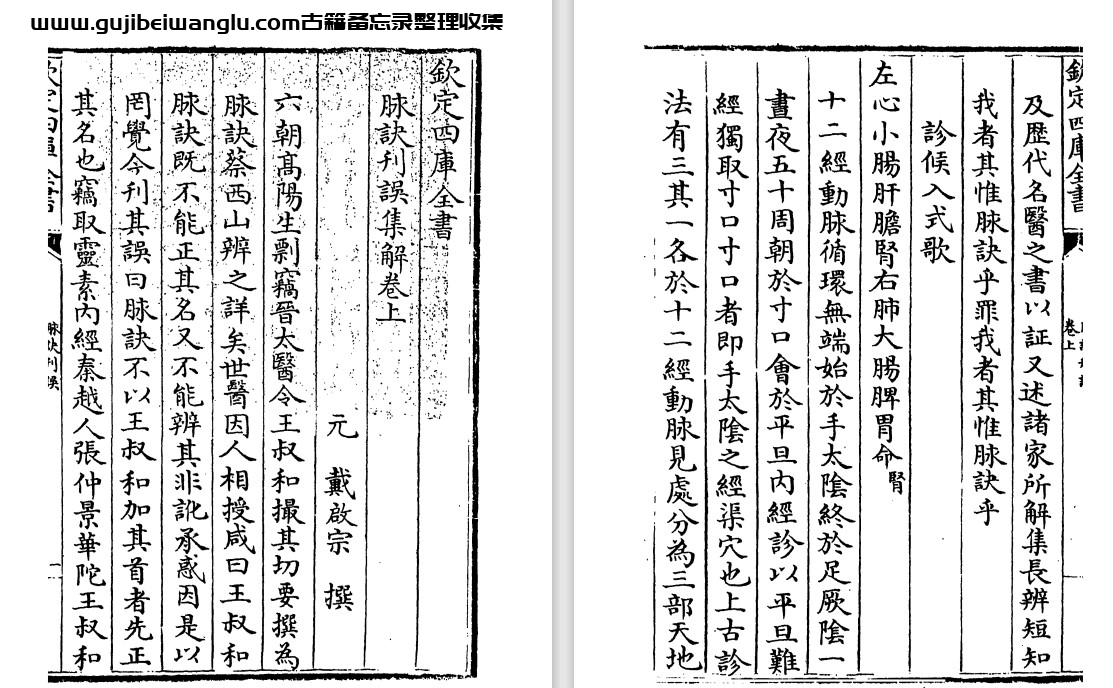 www.gujibeiwanglu.com古籍备忘录整理收集
欽定四庫全書
脉訣刋誤集解卷上
元 戴啟宗 撰
六朝髙陽生剽竊晉太醫令王叔和撮其切要撰為
脉訣蔡西山辨之詳矣世醫因人相授咸曰王叔和
脉訣既不能正其名又不能辨其非訛承惑因是以
罔覺今刋其誤曰脉訣不以王叔和加其首者先正
其名也竊取靈素内經秦越人張仲景華陀王叔和
欽定四庫全書
脉訣刋誤
一
欽定四庫全書
卷上
及歴代名醫之書以証又述諸家所解集長辨短知
我者其惟脉訣乎罪我者其惟脉訣乎
診候入式歌
左心小腸肝膽腎右肺大腸脾胃命腎
十二經動脉循環無端始於手太陰終於足厥陰一
晝夜五十周朝於寸口會於平旦内經診以平旦難
經獨取寸口寸口者即手太陰之經渠穴也上古診
法有三其一各於十二經動脉見處分為三部天地